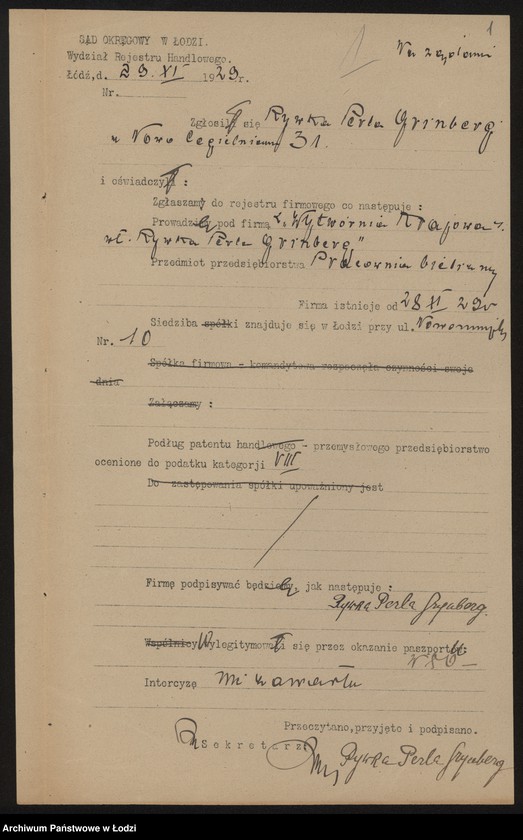 1
SĄD OKRĘGOWY W ŁODZI.
Wydział Rejestru Handlowego.
Łódź,d. 29. XI 1929 r.
Nr.
Zgłosił się Rywka Perla Grinberg
Nowo Cegielniana 31.
i oświadczył :
Zgłaszam do rejestru firmowego co następuje :
Prowadzę pod firmą "Wytwórnia Krajowa"
wł. Rywka Perla Grinberg"
Przedmiot przedsiębiorstwa Pracownia bielizny
Firma istnieje od 28 XI 29
Siedziba spółki znajduje się w Łodzi przy ul.
Nr. 10
Spółka firmowa - komandytowa rozpoczęła czynności swoje
dnia
Załączamy :
Podług patentu handlowego - przemysłowego przedsiębiorstwo
ocenione do podatku kategorji VIII
Do zastępowania spółki upoważniony jest
Firmę podpisywać będę, jak następuje :
Rywka Perla Grynberg.
Wspólnicy Wylegitymował się przez okazanie paszportu:
Intercyzę nie zawarła
Przeczytano,przyjęto i podpisano.
Sekretarz
Rywka Perla Grynberg
Archiwum Państwowe w Łodzi